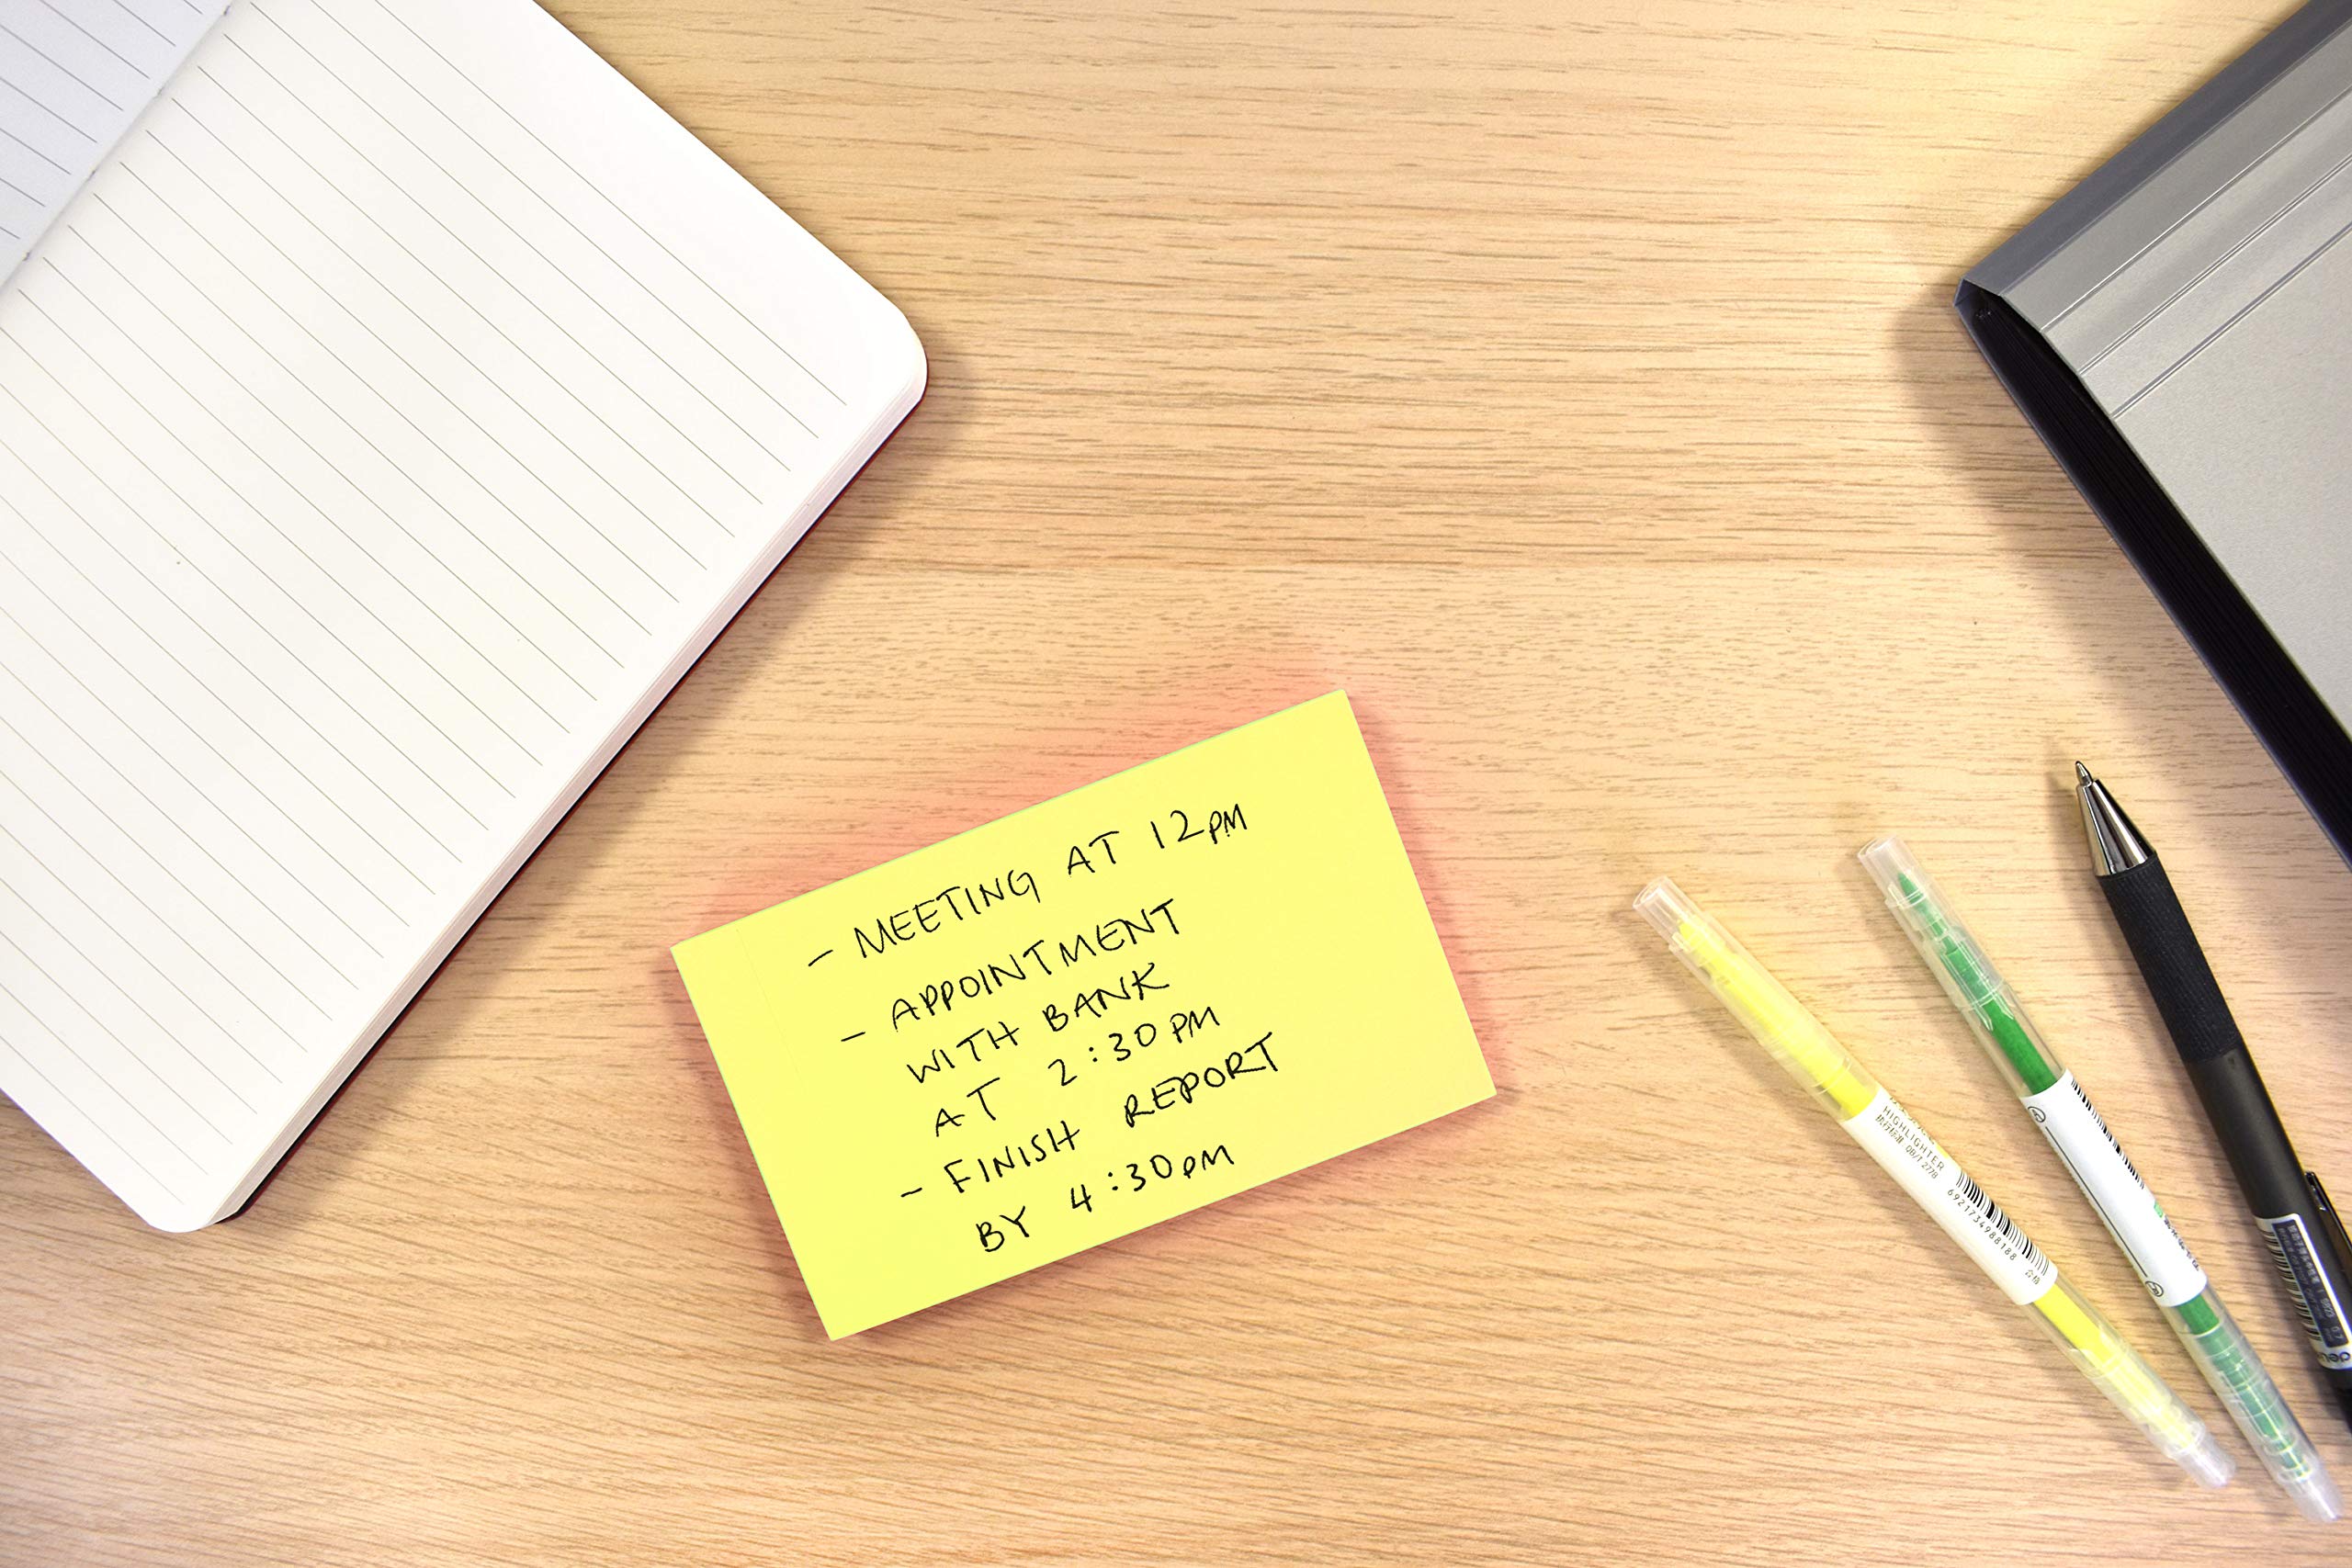 - MEETING AT 12PM
- APPOINTMENT
WITH BANK
AT 2:30PM
- FINISH REPORT
BY 4:30PM
HIGHLIGHTER
QB/T 2778
6921734988188
合格